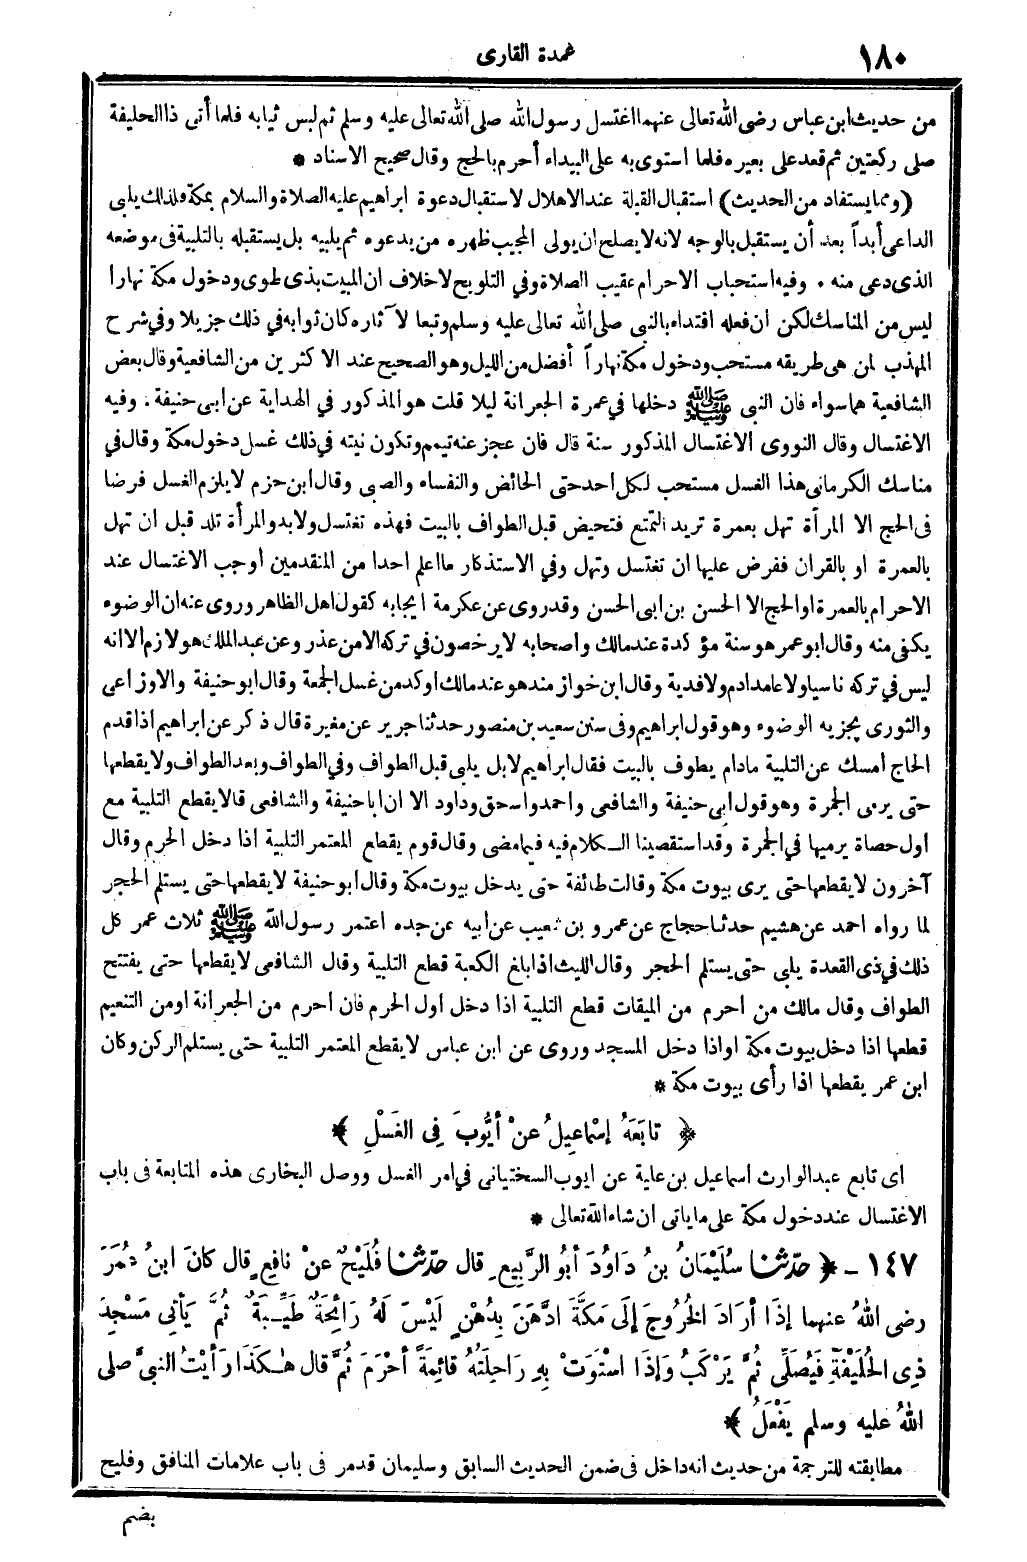 ١٨٠
عمدة القارى
من حديث ابن عباس رضى الله تعالى عنهما اغتسل رسول الله صلى الله تعالى عليه وسلم ثم لبس ثيابه فلما أتى ذا الحليفة
صلى ركعتين ثم قعد على بعيره فلما استوى به على البيداء أحرم بالحج وقال صحيح الاسناد *
(ومما يستفاد من الحديث) استقبال القبلة عند الاهلال لاستقبال دعوة ابراهيم عليه الصلاة والسلام بمكة فلذلك يلبى
الداعى أبداً بعد أن يستقبل بالوجه لانه لا يصلح ان يولى المجيب ظهره من يدعوه ثم يلبيه بل يستقبله بالتلبية فى موضعه
الذى دعى منه . وفيه استحباب الاحرام عقيب الصلاة وفي التلويح لاخلاف ان المبيت بذى طوى ودخول مكة نهارا
ليس من المناسك لكن ان فعله اقتداء بالنبى صلى الله تعالى عليه وسلم وتبعا لآثاره كان ثوابه في ذلك جزيلا وفي شرح
المهذب لمن هى طريقه مستحب ودخول مكة نهاراً أفضل من الليل وهو الصحيح عند الاكثرين من الشافعية وقال بعض
الشافعية هما سواء فان النبى ﷺ دخلها في عمرة الجعرانة ليلا قلت هو المذكور في الهداية عن ابى حنيفة . وفيه
الاغتسال وقال النووى الاغتسال المذكور سنة قال فان عجز عنه تيمم وتكون نيته في ذلك غسل دخول مكة وقال في
مناسك الكرمانى هذا الغسل مستحب لكل احد حتى الحائض والنفساء والصبى وقال ابن حزم لا يلزم الغسل فرضا
فى الحج الا المرأة تهل بعمرة تريد التمتع فتحيض قبل الطواف بالبيت فهذه تغتسل ولا بد والمرأة تلد قبل ان تهل
بالعمرة او بالقران ففرض عليها ان تغتسل وتهل وفي الاستذكار ما اعلم احدا من المتقدمين أوجب الاغتسال عند
الاحرام بالعمرة او الحج الا الحسن بن ابى الحسن وقد روى عن عكرمة ايجابه كقول اهل الظاهر وروى عنه ان الوضوء
يكفى منه وقال ابو عمر هو سنة مؤكدة عند مالك واصحابه لا يرخصون في تركه الا من عذر وعن عبد الملك هو لازم الا انه
ليس في تركه ناسيا ولا عامدا دم ولا فدية وقال ابن خواز منده هو عند مالك أوكد من غسل الجمعة وقال ابو حنيفة والاوزاعى
والثورى يجزيه الوضوء وهو قول ابراهيم وفى سنن سعيد بن منصور حدثنا جرير عن مغيرة قال ذكر عن ابراهيم اذا قدم
الحاج أمسك عن التلبية مادام يطوف بالبيت فقال ابراهيم لا بل يلبى قبل الطواف وفي الطواف وبعد الطواف ولا يقطعها
حتى يرمى الجمرة وهو قول ابى حنيفة والشافعى واحمد واسحق وداود الا ان ابا حنيفة والشافعى قالا يقطع التلبية مع
أول حصاة يرميها في الجمرة وقد استقصينا الكلام فيه فيما مضى وقال قوم يقطع المعتمر التلبية اذا دخل الحرم وقال
آخرون لا يقطعها حتى يرى بيوت مكة وقالت طائفة حتى يدخل بيوت مكة وقال أبو حنيفة لا يقطعها حتى يستلم الحجر
لما رواه احمد عن هشيم حدثنا حجاج عن عمرو بن شعيب عن أبيه عن جده اعتمر رسول الله ﷺ ثلاث عمر كل
ذلك في ذى القعدة يلبى حتى يستلم الحجر وقال الليث اذا بلغ الكعبة قطع التلبية وقال الشافعى لا يقطعها حتى يفتتح
الطواف وقال مالك من أحرم من الميقات قطع التلبية اذا دخل أول الحرم فان أحرم من الجعرانة اومن التنعيم
قطعها اذا دخل بيوت مكة او اذا دخل المسجد وروى عن ابن عباس لا يقطع المعتمر التلبية حتى يستلم الركن وكان
ابن عمر يقطعها اذا رأى بيوت مكة *
﴿ تابَعَهُ إسْماعِيلُ عنْ أيُّوبَ فِى الغَسْلِ ﴾
اى تابع عبد الوارث اسماعيل بن علية عن ايوب السختيانى في امر الغسل ووصل البخارى هذه المتابعة فى باب
الاغتسال عند دخول مكة على ما ياتى ان شاء الله تعالى *
١٤٧ - ﴿ حدّثنا سُلَيْمَانُ بنُ دَاوُدَ أبُو الرَّبِيعِ قال حدّثنا فُلَيْحٌ عنْ نافِعٍ قال كانَ ابنُ عُمَرَ
رضى اللهُ عنهما إذَا أرَادَ الخُرُوجَ إلَى مَكَّةَ ادَّهَنَ بِدُهْنٍ لَيْسَ لَهُ رَائِحَةٌ طَيِّبَةٌ ثُمَّ يَأتِى مَسْجِدَ
ذِى الحُلَيْفَةِ فَيُصَلِّى ثُمَّ يَرْكَبُ وَإذَا اسْتَوَتْ بِهِ رَاحِلَتُهُ قائِمَةً أحْرَمَ ثُمَّ قال هٰكَذَا رَأيْتُ النبىَّ صلى
اللهُ عليه وسلم يَفْعَلُ ﴾
مطابقته للترجمة من حديث انه داخل فى ضمن الحديث السابق وسليمان قد مر فى باب علامات المنافق وفليح
بضم